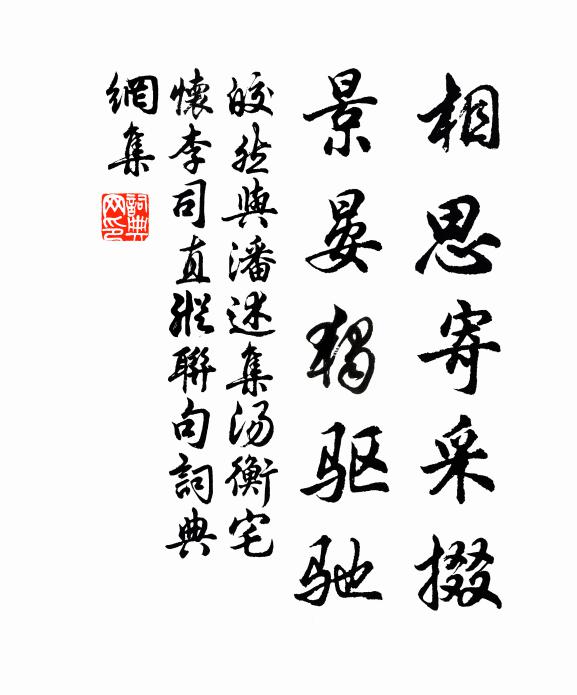 相思寄采掇
景晏獨驱驰
皎然與潘述集汤衡宅
懷李司直縱聯句詞典
網集
詞典
网印